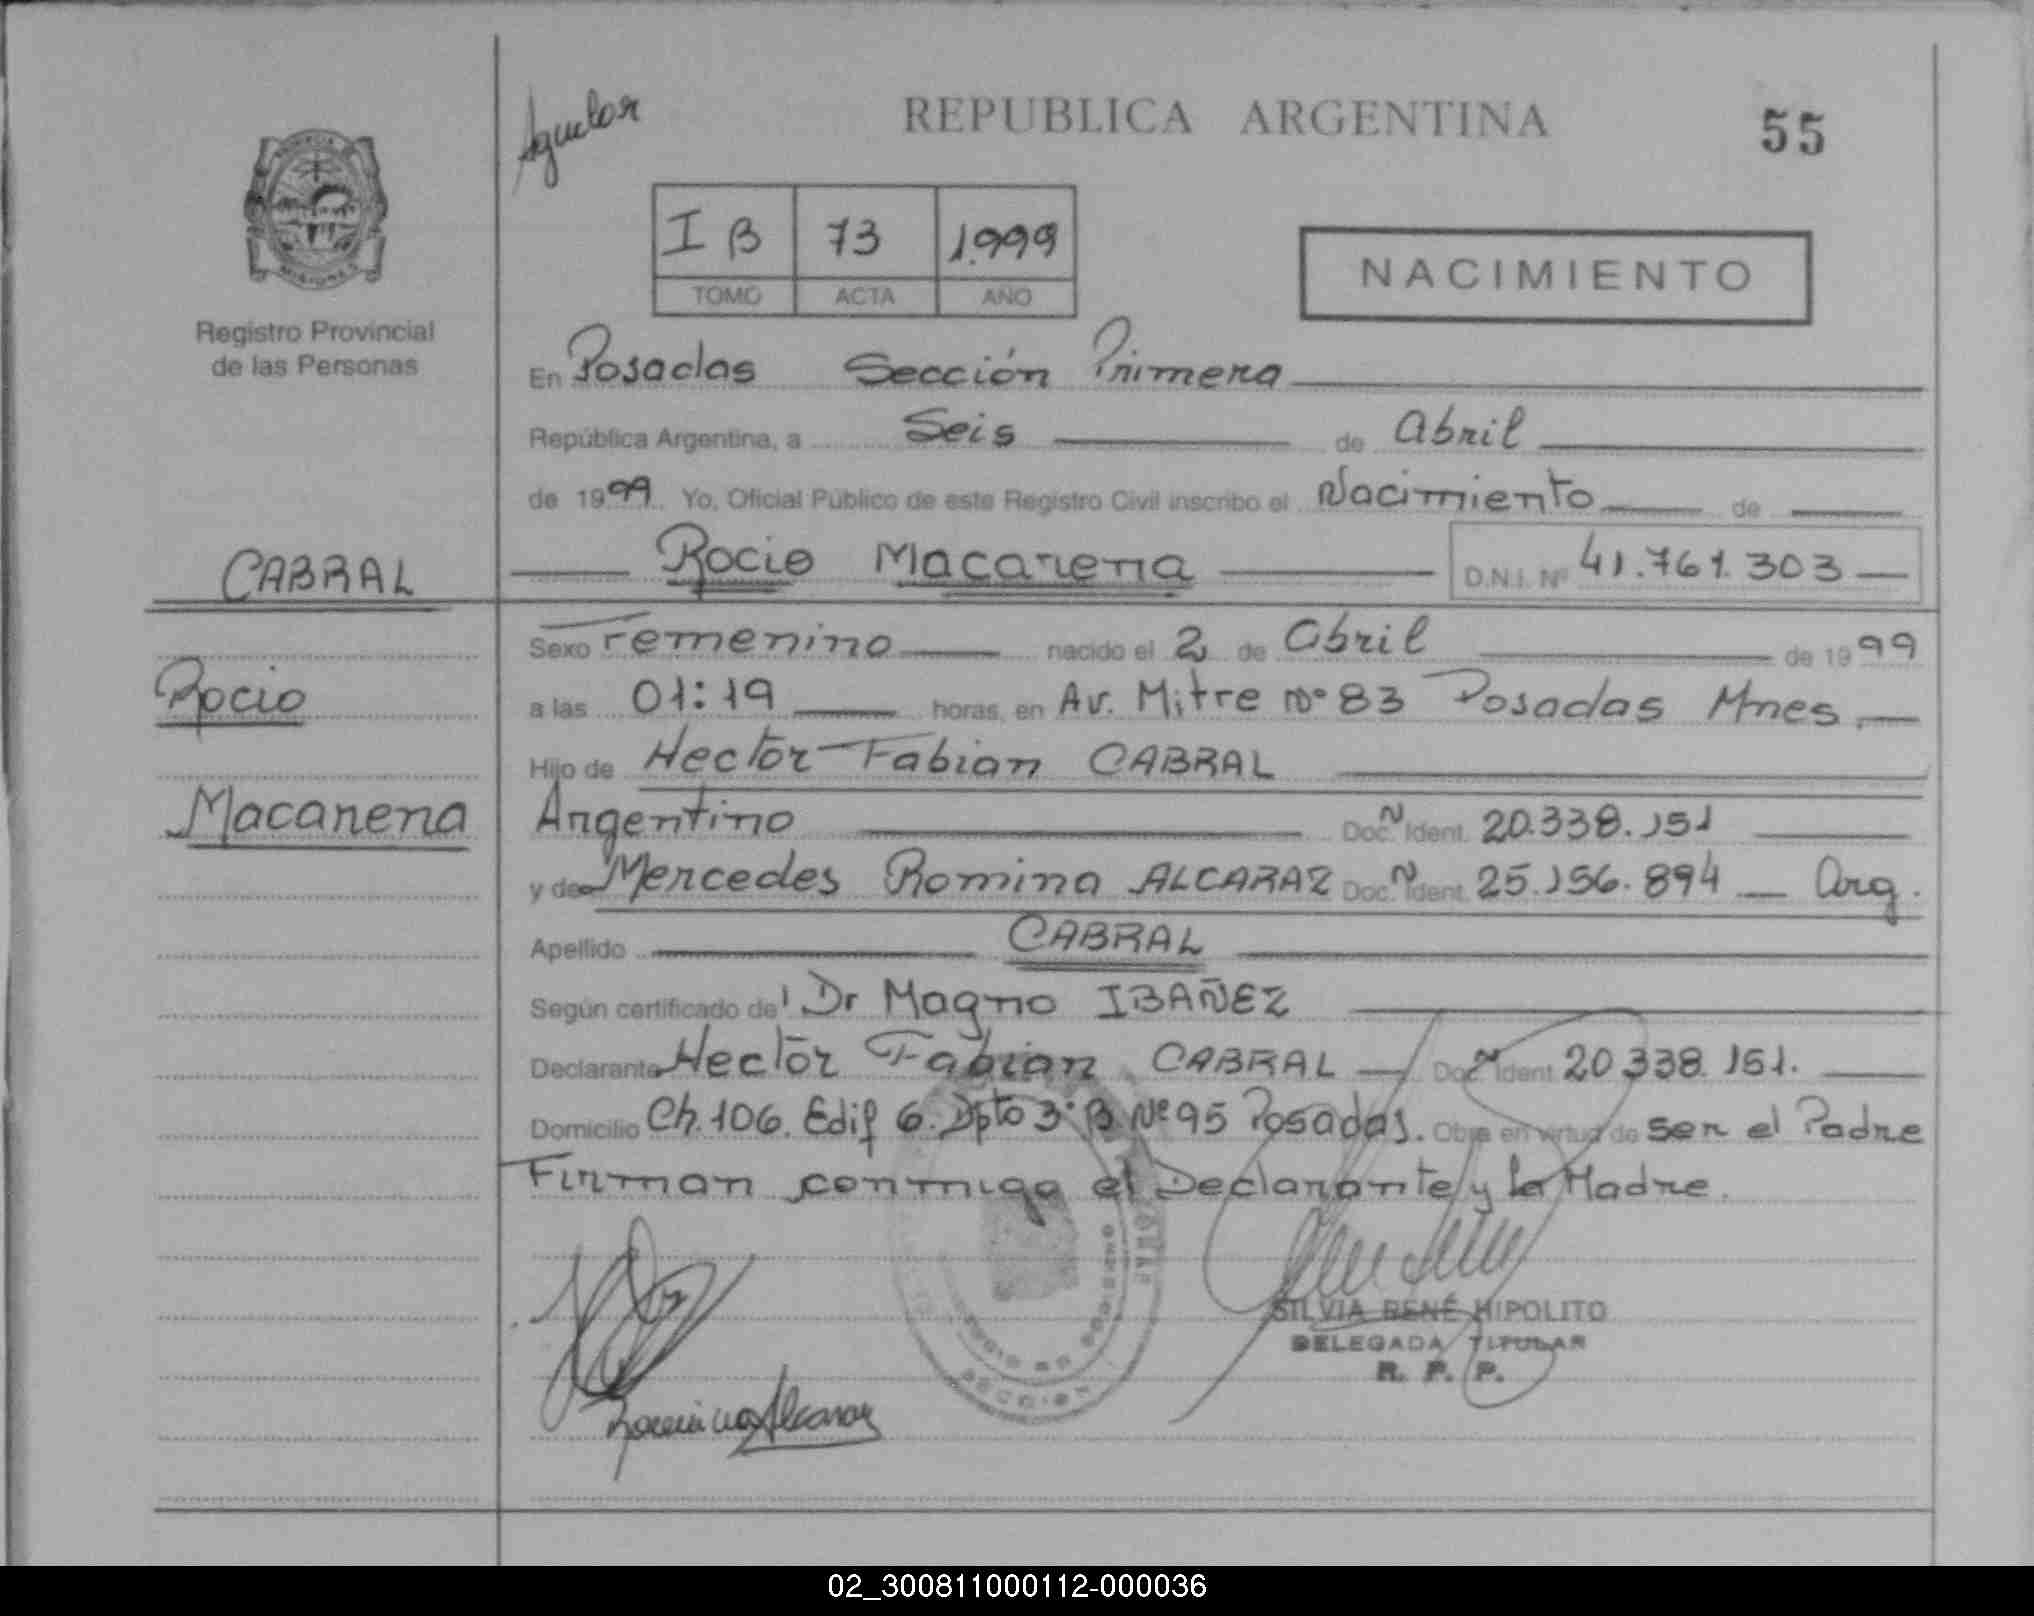 Aguilar
REPUBLICA ARGENTINA
55
I B 73 1.999
TOMO ACTA AÑO
NACIMIENTO
Registro Provincial
de las Personas
En Posadas Sección Primera
República Argentina, a Seis de Abril
de 1999 Yo, Oficial Público de este Registro Civil inscribo el Nacimiento de
CABRAL
Rocio Macarena D.N.I. Nº 41.761.303
Sexo Femenino nacido el 2 de Abril de 1999
Rocio
a las 01:19 horas, en Av. Mitre Nº 83 Posadas Mnes.
Hijo de Hector Fabian CABRAL
Macarena
Argentino Doc. Ident. 20.338.151
y de Mercedes Romina ALCARAZ Doc. Ident. 25.156.894 Arg.
Apellido CABRAL
Según certificado de Dr Magno IBAÑEZ
Declarante Hector Fabian CABRAL Doc. Ident. 20.338.151.
Domicilio Ch. 106. Edif 6. Dpto 3º B Nº 95 Posadas. Obra en virtud de ser el Padre
Firman conmigo el Declarante y la Madre.
SILVIA RENÉ HIPOLITO
DELEGADA TITULAR
R. P. P.
Romina Alcaraz
SECCION
02_300811000112-000036